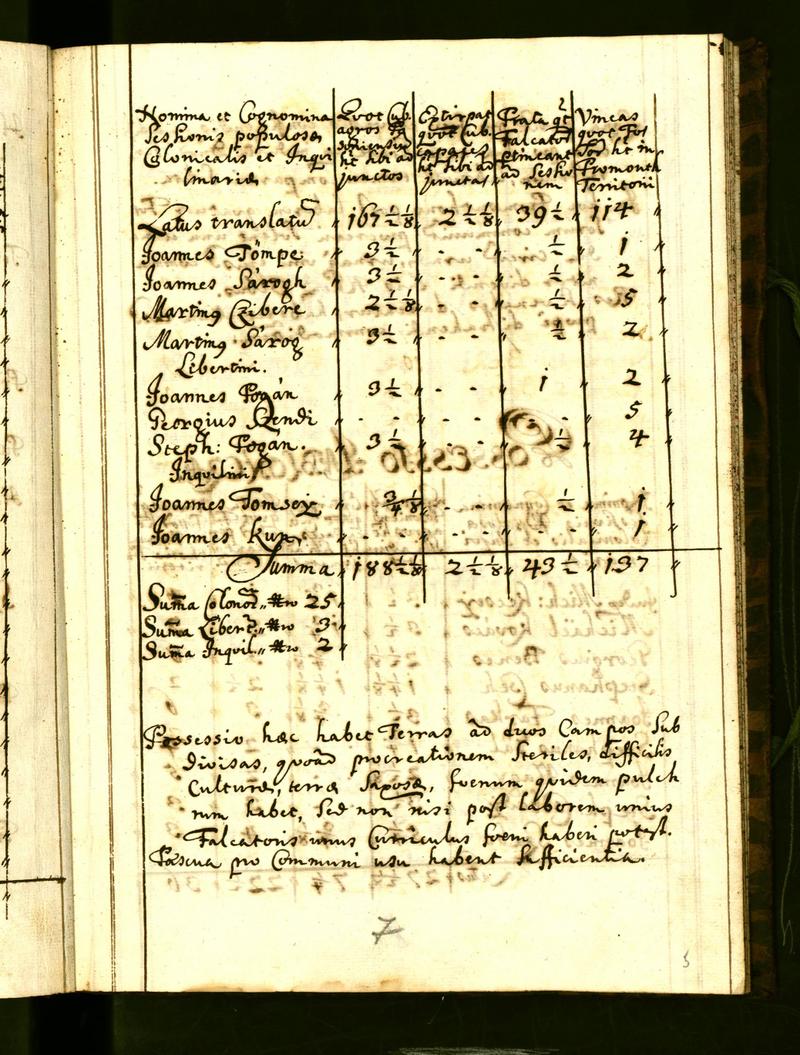 Nomina et Cognomina
Sessionis populosæ
Colonicalis et Inqui
linariæ
Quot Cub.
agros
hēt sibi ad
junctos
Extirpat
quot Cub.
hēt sibi ad
junctas
Prata qt
Falcatorꝰ
ptineant
ad Sessio
nem
Vineas
quot Fos
hēt in
Promonth
Territorii
Latus translatū " 167 ½ ⅛ " 2 ½ ⅛ " 39 ½ " 114 "
Joannes Tömpe " 3 ½ " - - " ½ " 1 "
Joannes Sárogh " 3 ½ " - - " ½ " 2 "
Martinꝰ Czibere " 2 ½ ⅛ " - - " ½ " 5 "
Martinꝰ Sárog " 3 ½ " - - " ½ " 2 "
Libertini.
Joannes Pogán " 3 ½ " - - " 1 " 2 "
Georgius Rendi " - - " - - " - - " 5 "
Steph: Pogán. " 3 ½ " - - " ½ " 4 "
Inquilini
Joannes Tomsey " ¾ ⅛ " - - " ½ " 1 "
Joannes Kupr " - - " - - " - - " 1 "
Summa " 188 ½ ⅛ " 2 ½ ⅛ " 43 ½ " 137 "
Suma Colonoꝝ " Nro 25 "
Suma Libert: " Nro 3 "
Suma Inquil. " Nro 2 "
Possessio hæc habet Terras ad duos Campos Sub
divisas, quoad procreationem Steriles, difficilis
Culturæ, terræ Saxosæ, foenum quidem pulch
rum habet, Sed non nisi post laborem unius
Falcatoris unus Curriculus foeni haberi potest.
Pascua pro Communi usu habent Sufficientia.
7
5